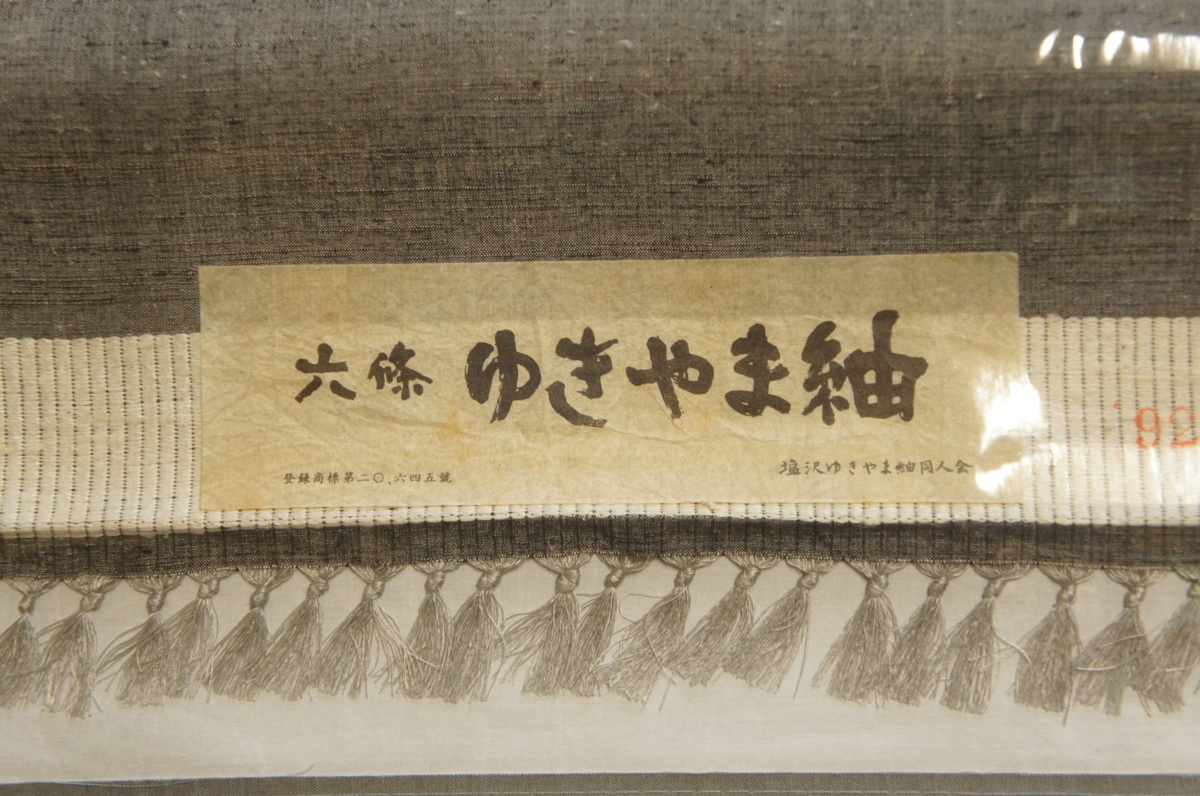 六條 ゆきやま紬
登録商標第二〇、六四五號
塩沢ゆきやま紬同人会
'92